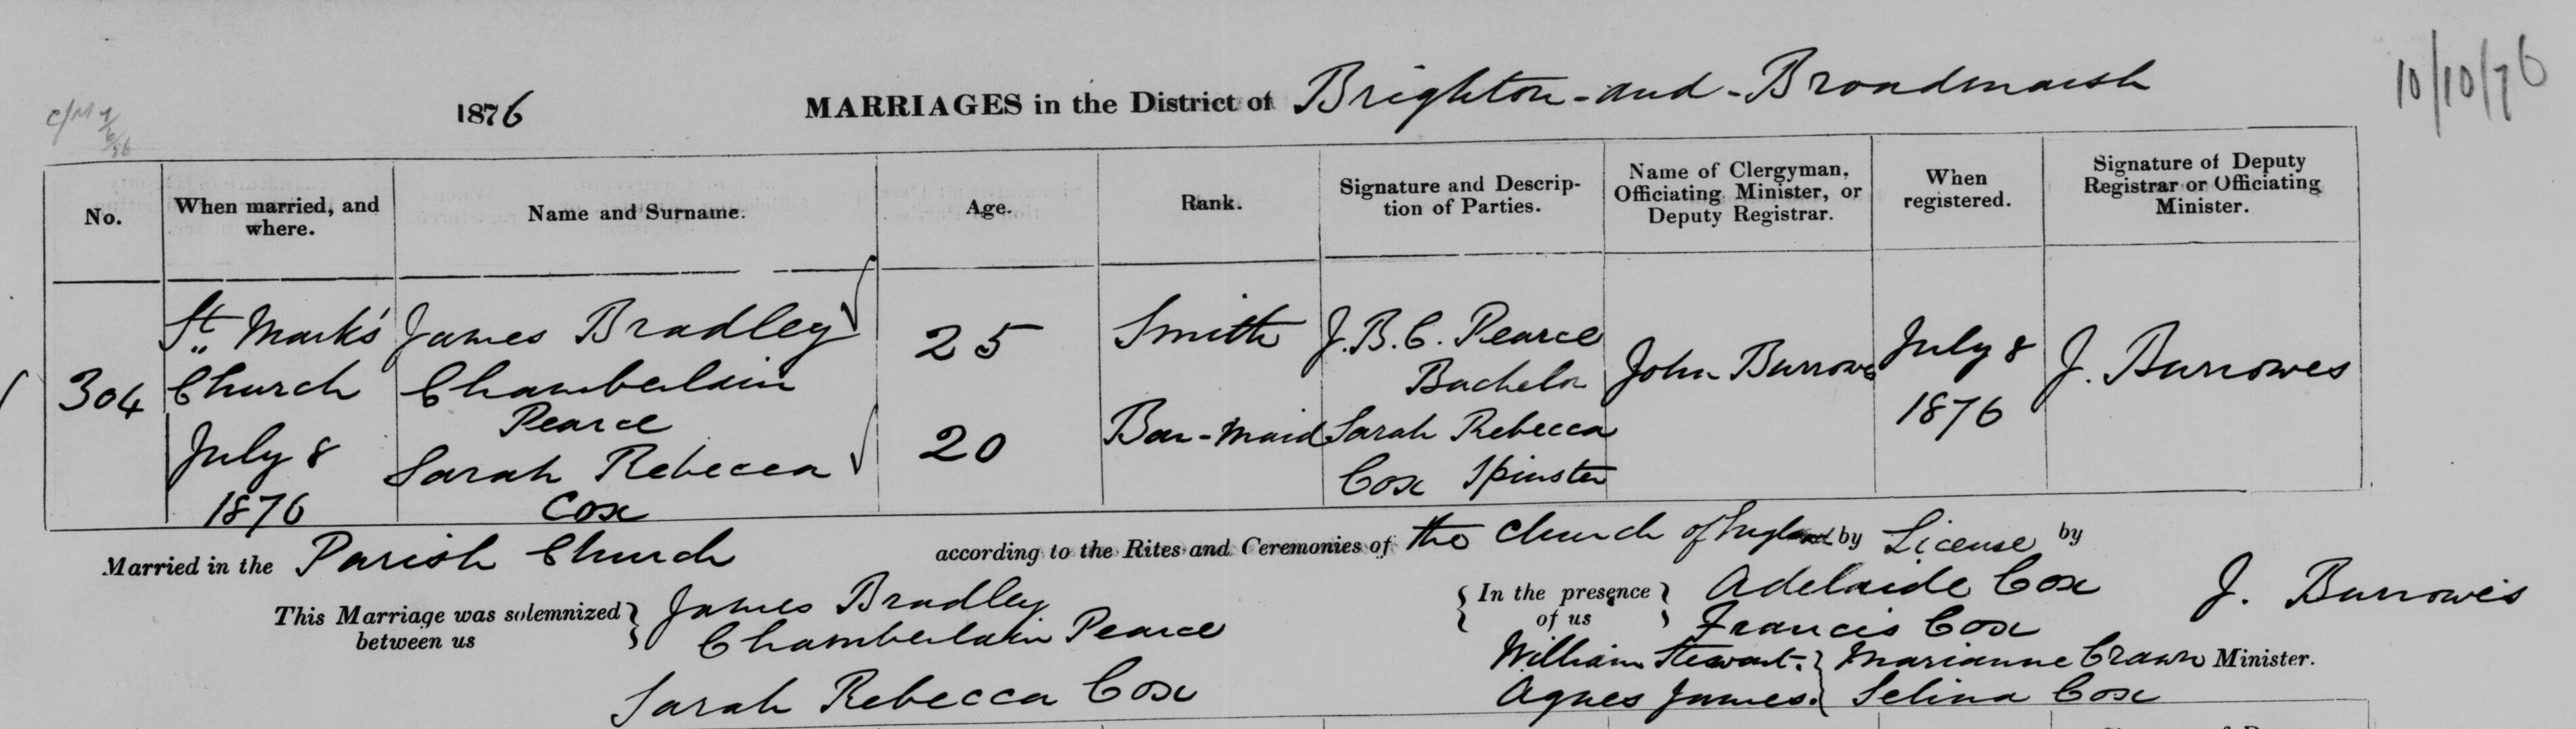 1876 MARRIAGES in the District of Brighton-and-Broadmarsh 10/10/76
No. When married, and where. Name and Surname. Age. Rank. Signature and Descrip-tion of Parties. Name of Clergyman, Officiating Minister, or Deputy Registrar. When registered. Signature of Deputy Registrar or Officiating Minister.
St. Mark's James Bradley 25 Smith J.B.C. Pearce John Burrowes July 8 J. Burrowes
304 Church Chamberlain Bachelor 1876
Pearce
July 8 Sarah Rebecca 20 Bar-Maid Sarah Rebecca
1876 Cox Cox Spinster
Married in the Parish Church according to the Rites and Ceremonies of the Church of England by License by
This Marriage was solemnized between us } James Bradley { In the presence of us } Adelaide Cox J. Burrowes
Chamberlain Pearce Francis Cox
William Stewart. } Marianne Crawn Minister.
Sarah Rebecca Cox Agnes James. } Selina Cox